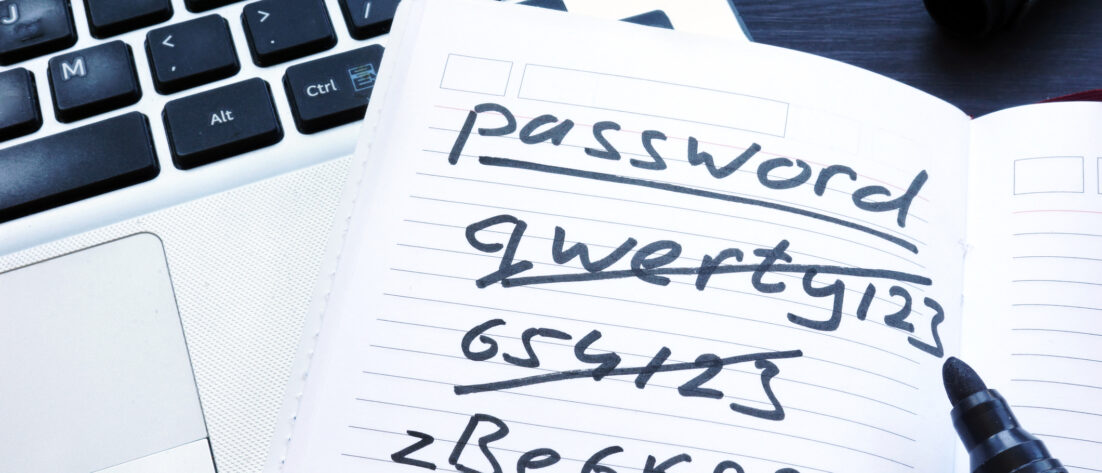 J
M
<
,
>
.
/
Alt
Ctrl
password
qwerty123
654123